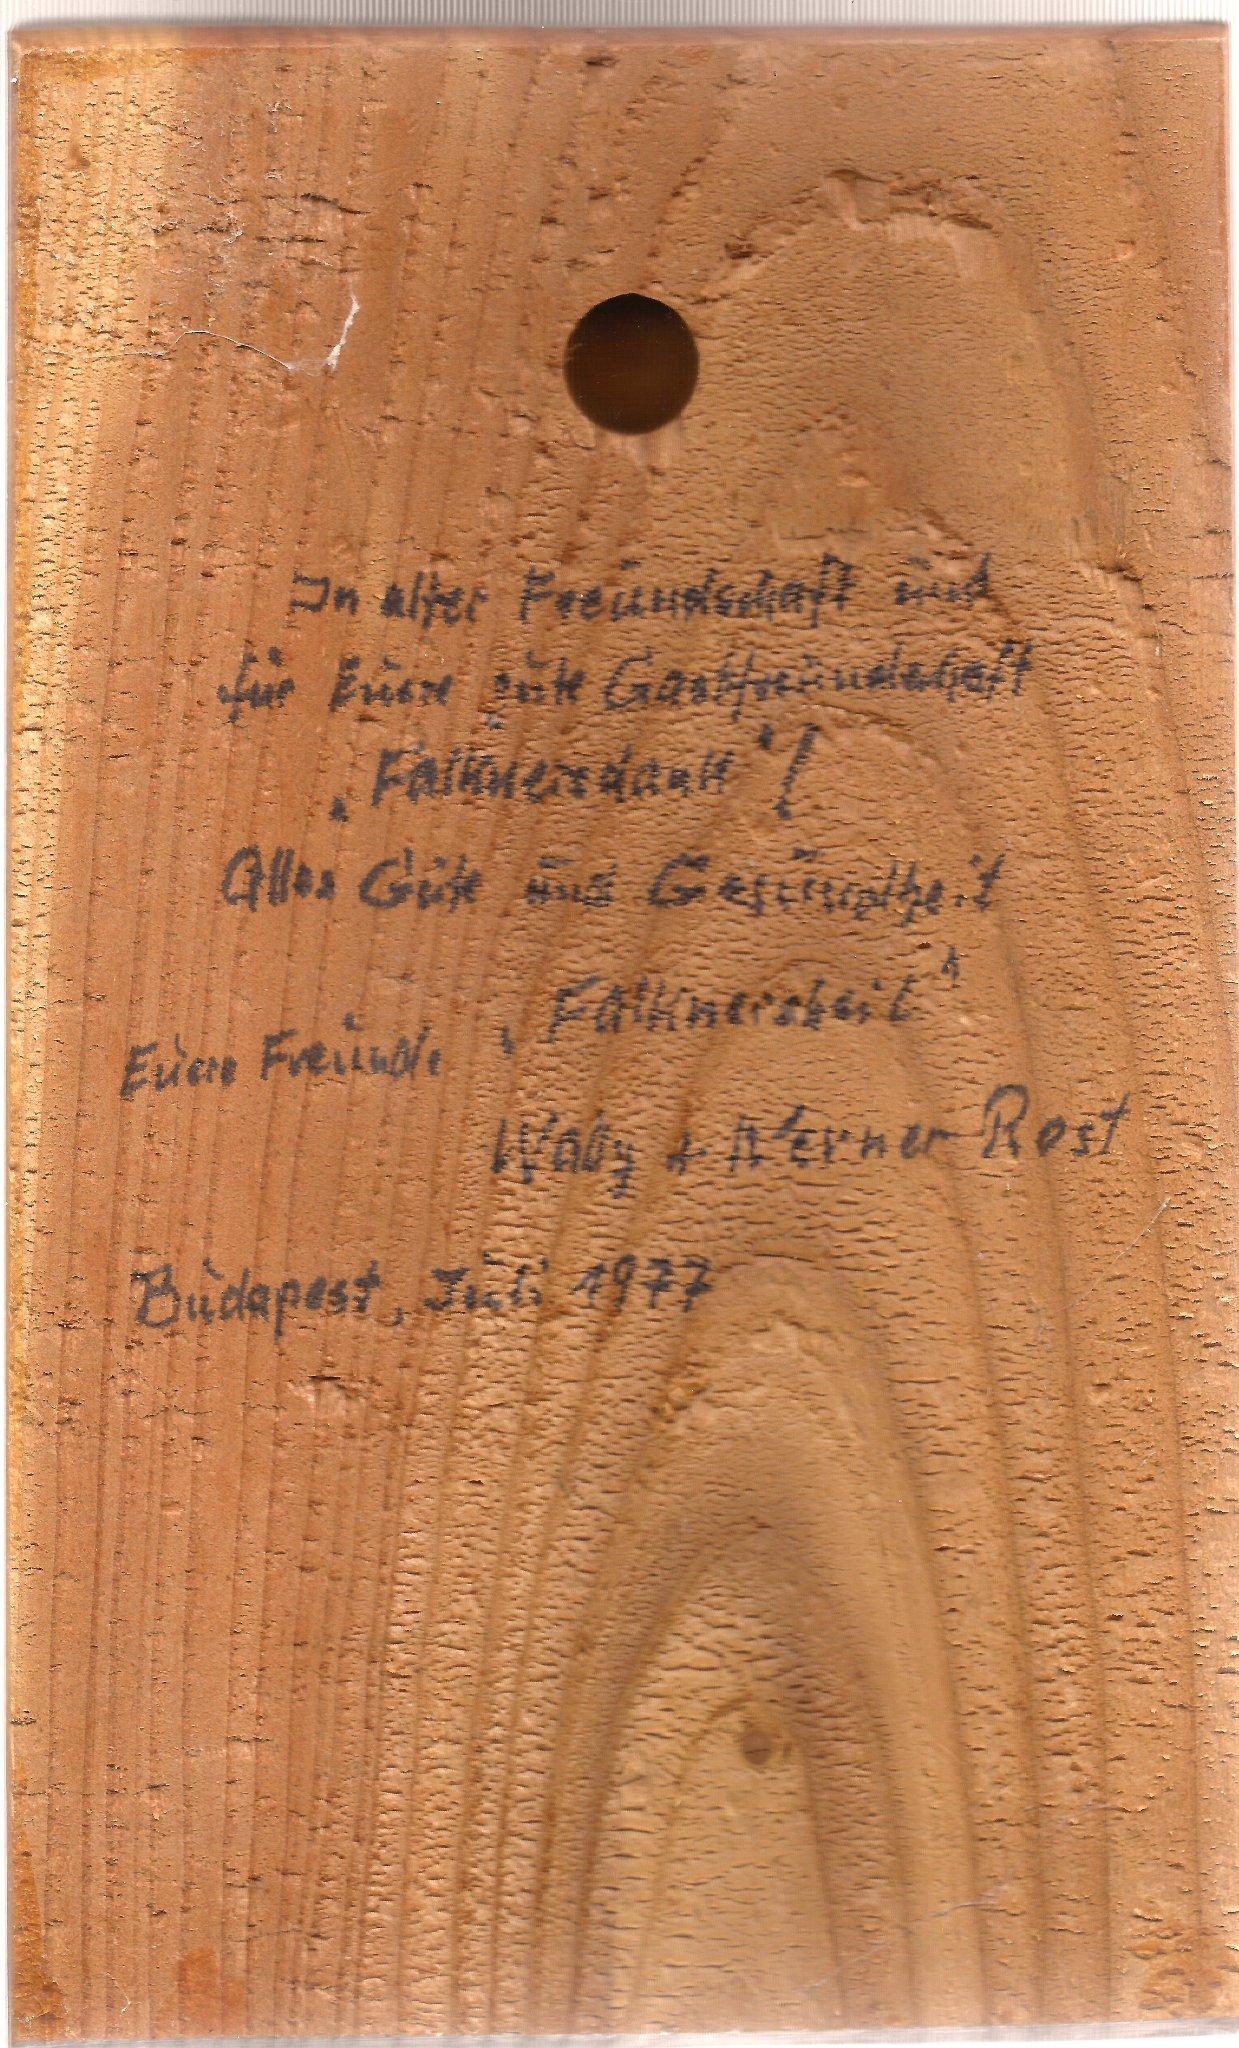 In alter Freundschaft und
für Euere gute Gastfreundschaft
„Falknersdank“!
Alles Gute und Gesundheit
„Falknersheil“
Euere Freunde
Wally + Werner Rost
Budapest, Juli 1977